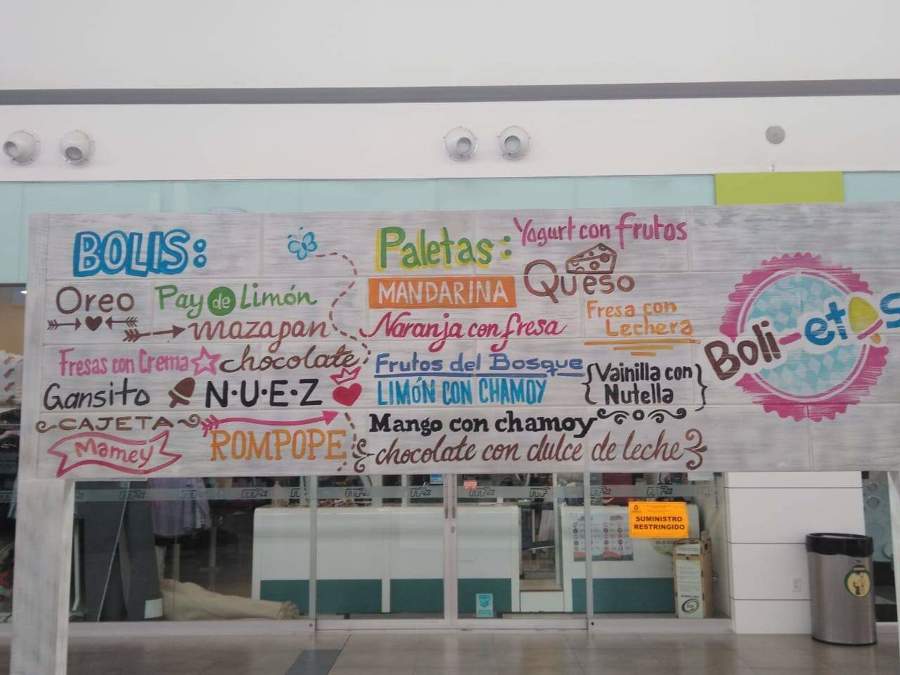 BOLIS:
Oreo
Pay de Limón
mazapan
Fresas con Crema
chocolate
Gansito
N·U·E·Z
CAJETA
Mamey
ROMPOPE
Paletas:
Yogurt con frutos
MANDARINA
Queso
Naranja con fresa
Fresa con
Lechera
Frutos del Bosque
LIMÓN CON CHAMOY
Vainilla con
Nutella
Mango con chamoy
chocolate con dulce de leche
Boli-etos
SUMINISTRO
RESTRINGIDO